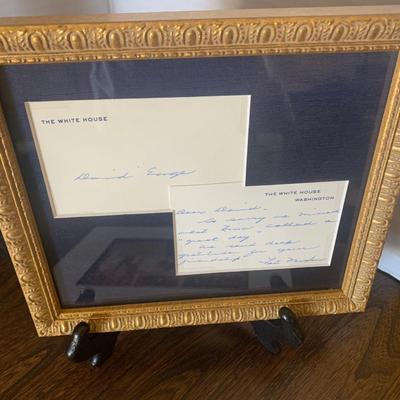 THE WHITE HOUSE
David
THE WHITE HOUSE
WASHINGTON
Dear David,
So sorry we missed
what called a
"great day"
We send deep
gratitude for your
friendship